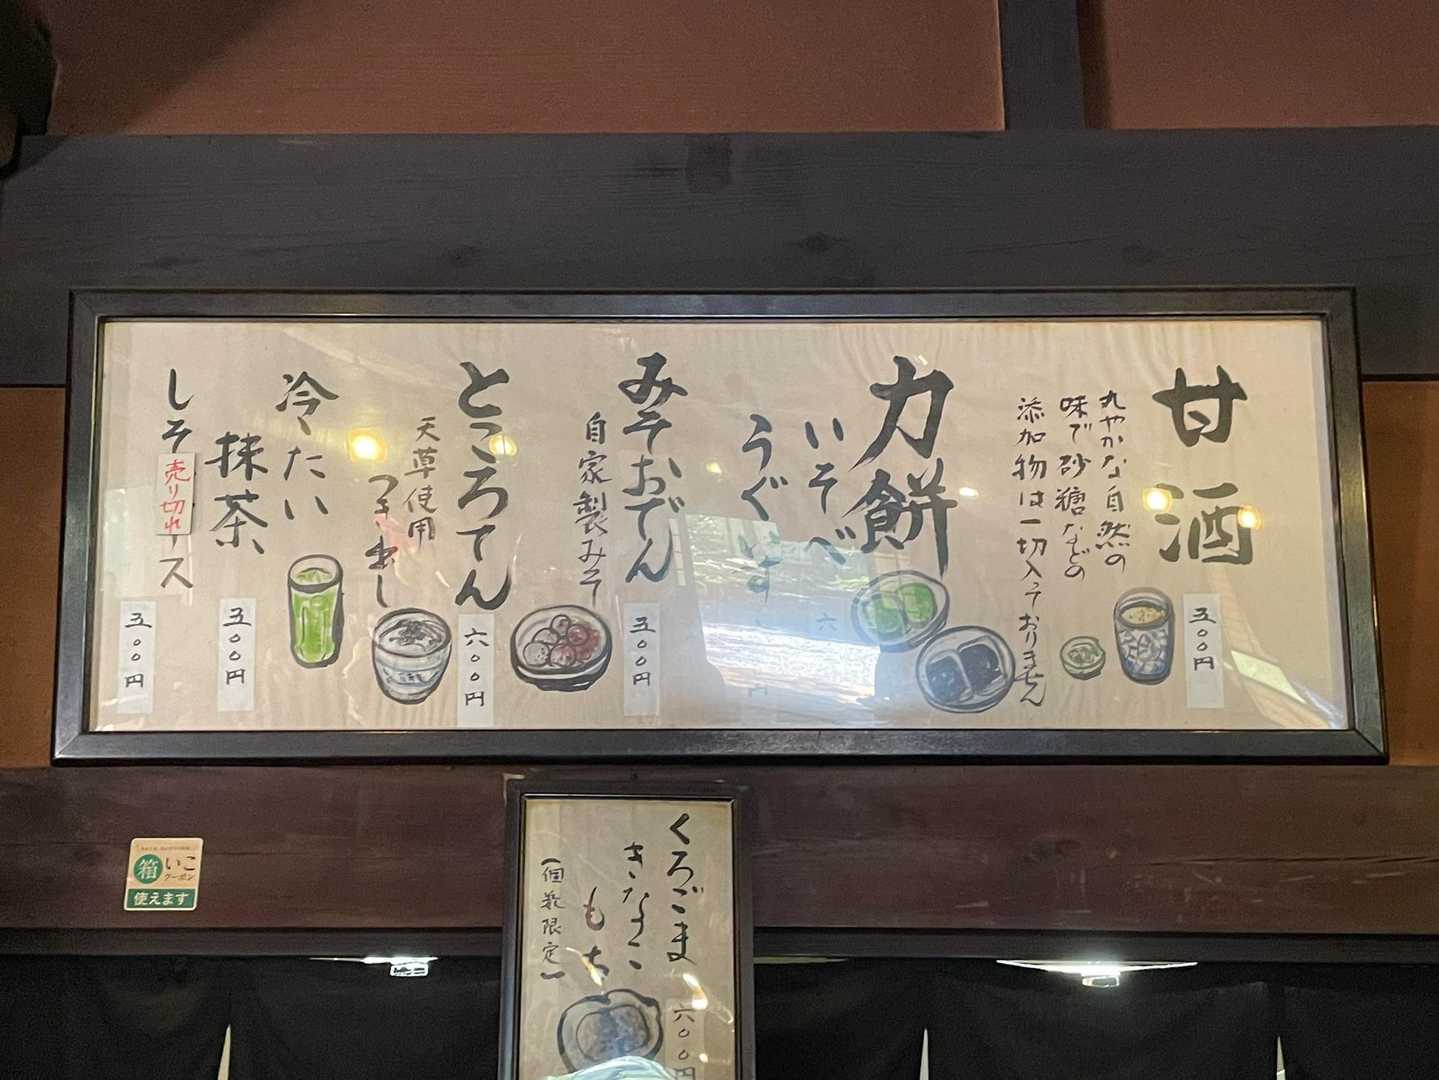 甘酒
丸やかな自然の
味で砂糖などの
添加物は一切入っておりません
五〇〇円
力餅
いそべ
うぐいす
六
円
みそおでん
自家製みそ
五〇〇円
ところてん
天草使用
つき出し
六〇〇円
冷たい
抹茶
五〇〇円
しそ
売り切れ
ース
五〇〇円
くろごま
きなこ
もち
(個数限定)
六〇〇円
箱
いこ
クーポン
使えます